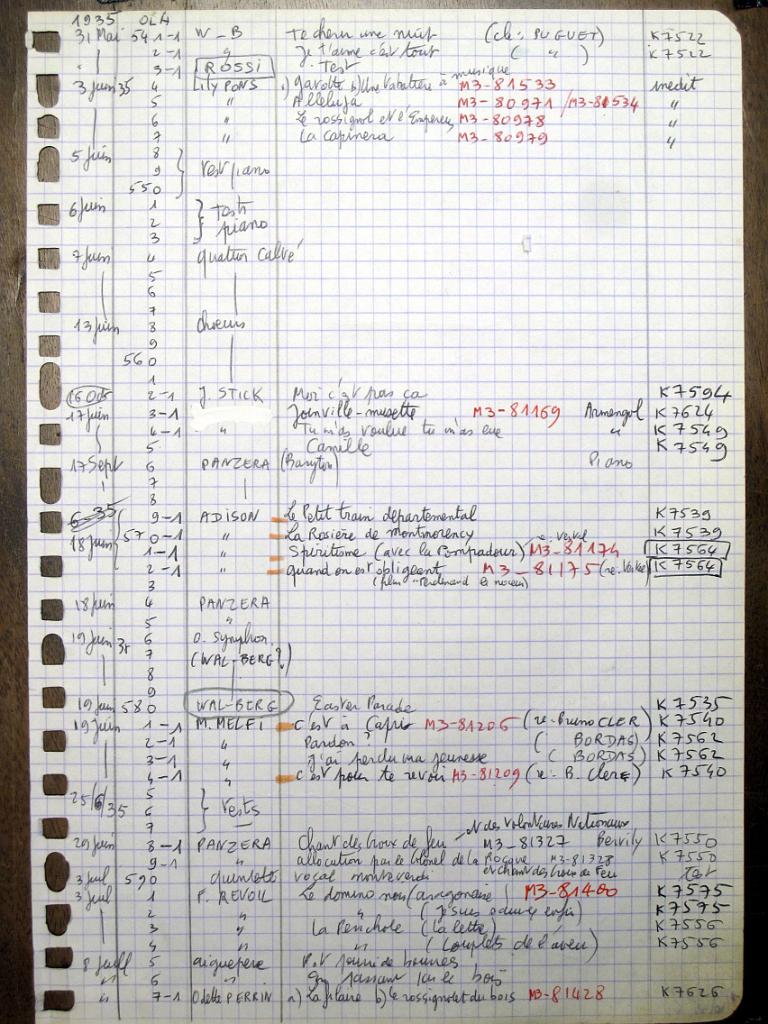 1935 OLA
31 Mai 541-1 W-B Te chern une nuit (cle: PUGUET) K7522
" 2-1 " Je t'aime c'est tout ( " ) K7522
" 3-1 ROSSI Test
3 juin 35 4 Lily PONS a) gavotte b) Une tabatière à musique M3-81533 inedit
5 " Alleluja M3-80971 / M3-81534 "
6 " Le rossignol et l'Empereur M3-80978 "
7 " La capinera M3-80979 "
5 juin 8
9 Test piano
550
6 juin 1 Tests
2 piano
3
7 juin 4 quatuor Calvé
5
6
7
13 juin 8 choeurs
9
560
1
16 Oct 2-1 J. STICK Moi c'est pas ça K7594
17 juin 3-1 Joinville-musette M3-81169 Armengol K7624
4-1 " Tu m'as voulue tu m'as eue " K7549
5 Camille K7549
17 Sept 6 PANZERA (Baryton) Piano
" 7
8
6-35 9-1 ADISON Le Petit train départemental K7539
570-1 " La Rosière de montmorency K7539
18 juin 1-1 " Spiritisme (avec la Pompadour) M3-81174 K7564
2-1 " quand on est obligeant M3-81175 K7564
3 (film "Ferdinand le noceur)
18 juin 4 PANZERA
5 "
19 juin 35 6 O. Symphon.
7 (WAL-BERG?)
8
9
19 juin 580 WAL-BERG Easter Parade K7535
19 juin 1-1 M. MELFI c'est à Capri M3-81206 (re-Bruno CLER) K7540
2-1 " Pardon? ( BORDAS) K7562
3-1 " j'ai perdu ma jeunesse ( BORDAS) K7562
4-1 " c'est pour te revoir M3-81209 (re: B. Clere) K7540
25/6/35 5
6 Tests
7
29 juin 8-1 PANZERA Chant des Croix de feu M3-81327 K7550
des volontaires Nationaux
9-1 " allocution par le Colonel de la Rocque M3-81328 K7550
et chant des Croix de Feu
3 juil 590 quintette vocal monteverdi Test
3 juil 1 F. REVOIL Le domino noir (aragonaise) M3-81400 K7575
2 " " (je suis sauvée enfin) K7575
3 " La Perichole (la lettre) K7556
4 " " (Couplets de l'aveu) K7556
8 juil 5 aiguepere
" 6 " En passant par le bois
" 7-1 Odette PERRIN a) La filaire b) le rossignolet du bois M3-81428 K7626